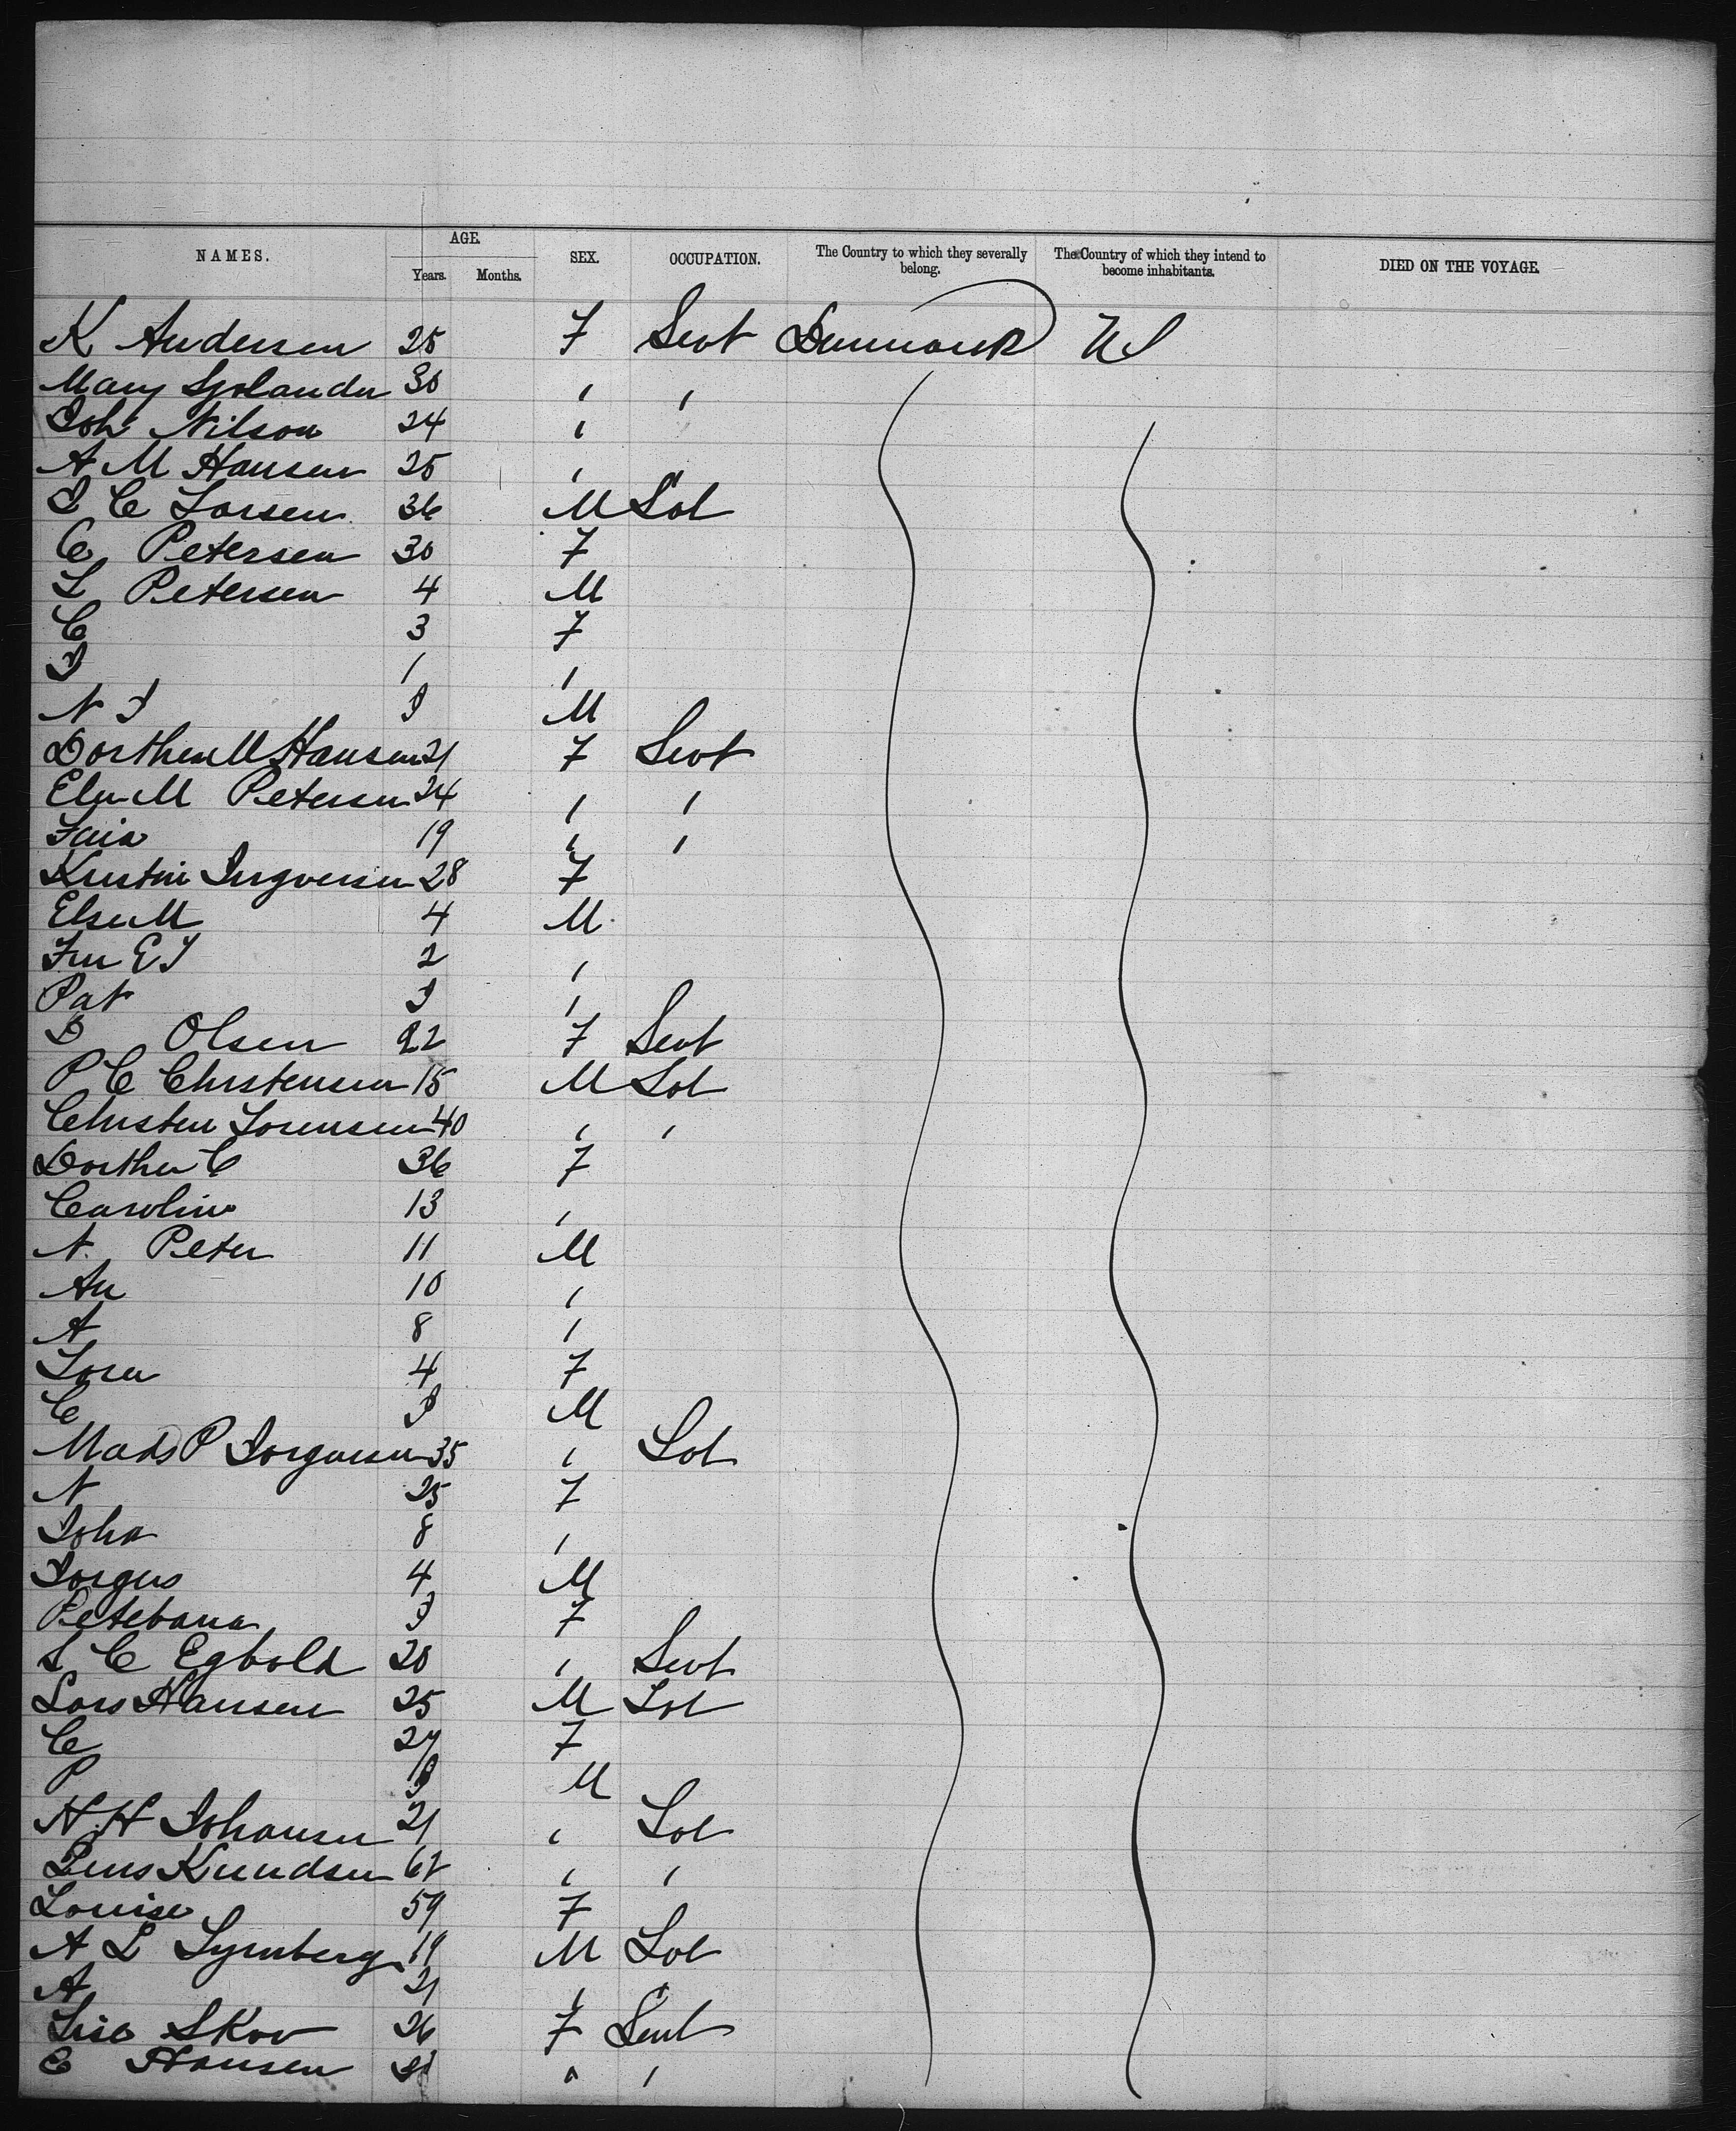 NAMES. AGE. Years. Months. SEX. OCCUPATION. The Country to which they severally belong. The Country of which they intend to become inhabitants. DIED ON THE VOYAGE.
K Andersen 25 F Sevt Denmark US
Mary Sjolander 30 " "
Joh Nilson 24 "
A M Hansen 25 "
J C Larsen 36 M Lab
C Petersen 30 F
L Petersen 4 M
C 3 F
J 1 "
N J M
Dorthea M Hansen 21 F Sevt
Else M Petersen 24 " "
19 " "
Kirstine 28 F
Else M 4 M
2 "
Pat "
Olsen 22 F Sevt
P C Christensen 15 M Lab
Christen Sorensen 40 " "
Dorthe C 36 F
Caroline 13 "
N. Peter 11 M
An 10 "
A 8 "
4 F
C M
Mads P Jorgensen 35 " Lab
N 25 F
Joha 8 "
Jorgen 4 M
F
S C Egbold 20 " Sevt
Lars Hansen 25 M Lab
C 27 F
P M
N H Johansen 21 " Lab
Jens Knudsen 62 " "
Louise 59 F
A L 19 M Lab
A 21 "
Lise Skov 26 F Sevt
C Hansen " "